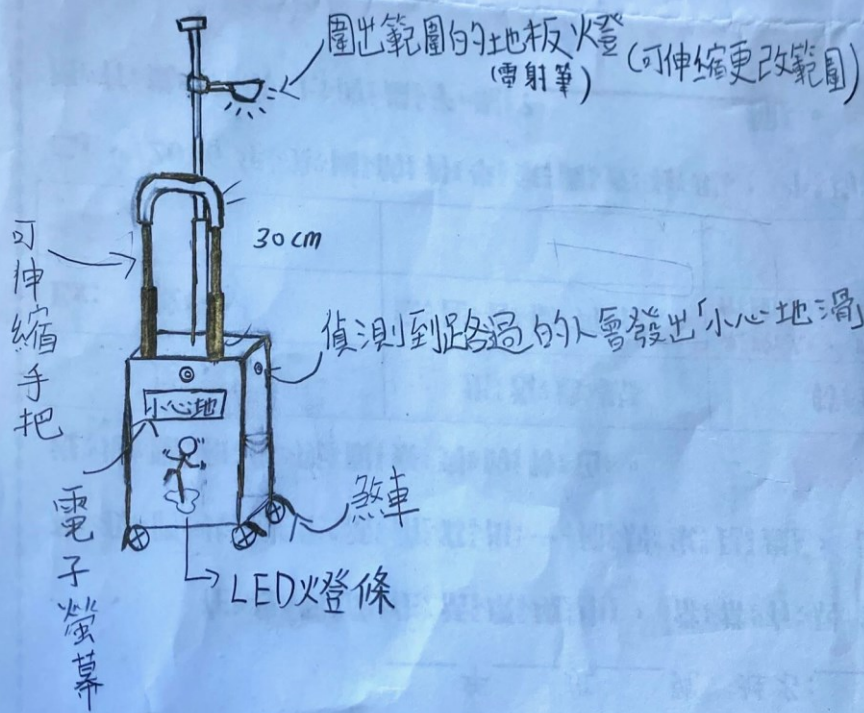 圍出範圍的地板燈 (可伸縮更改範圍)
(雷射筆)
30cm
可伸縮手把
偵測到路過的人會發出「小心地滑」
小心地
煞車
電子螢幕
LED燈條